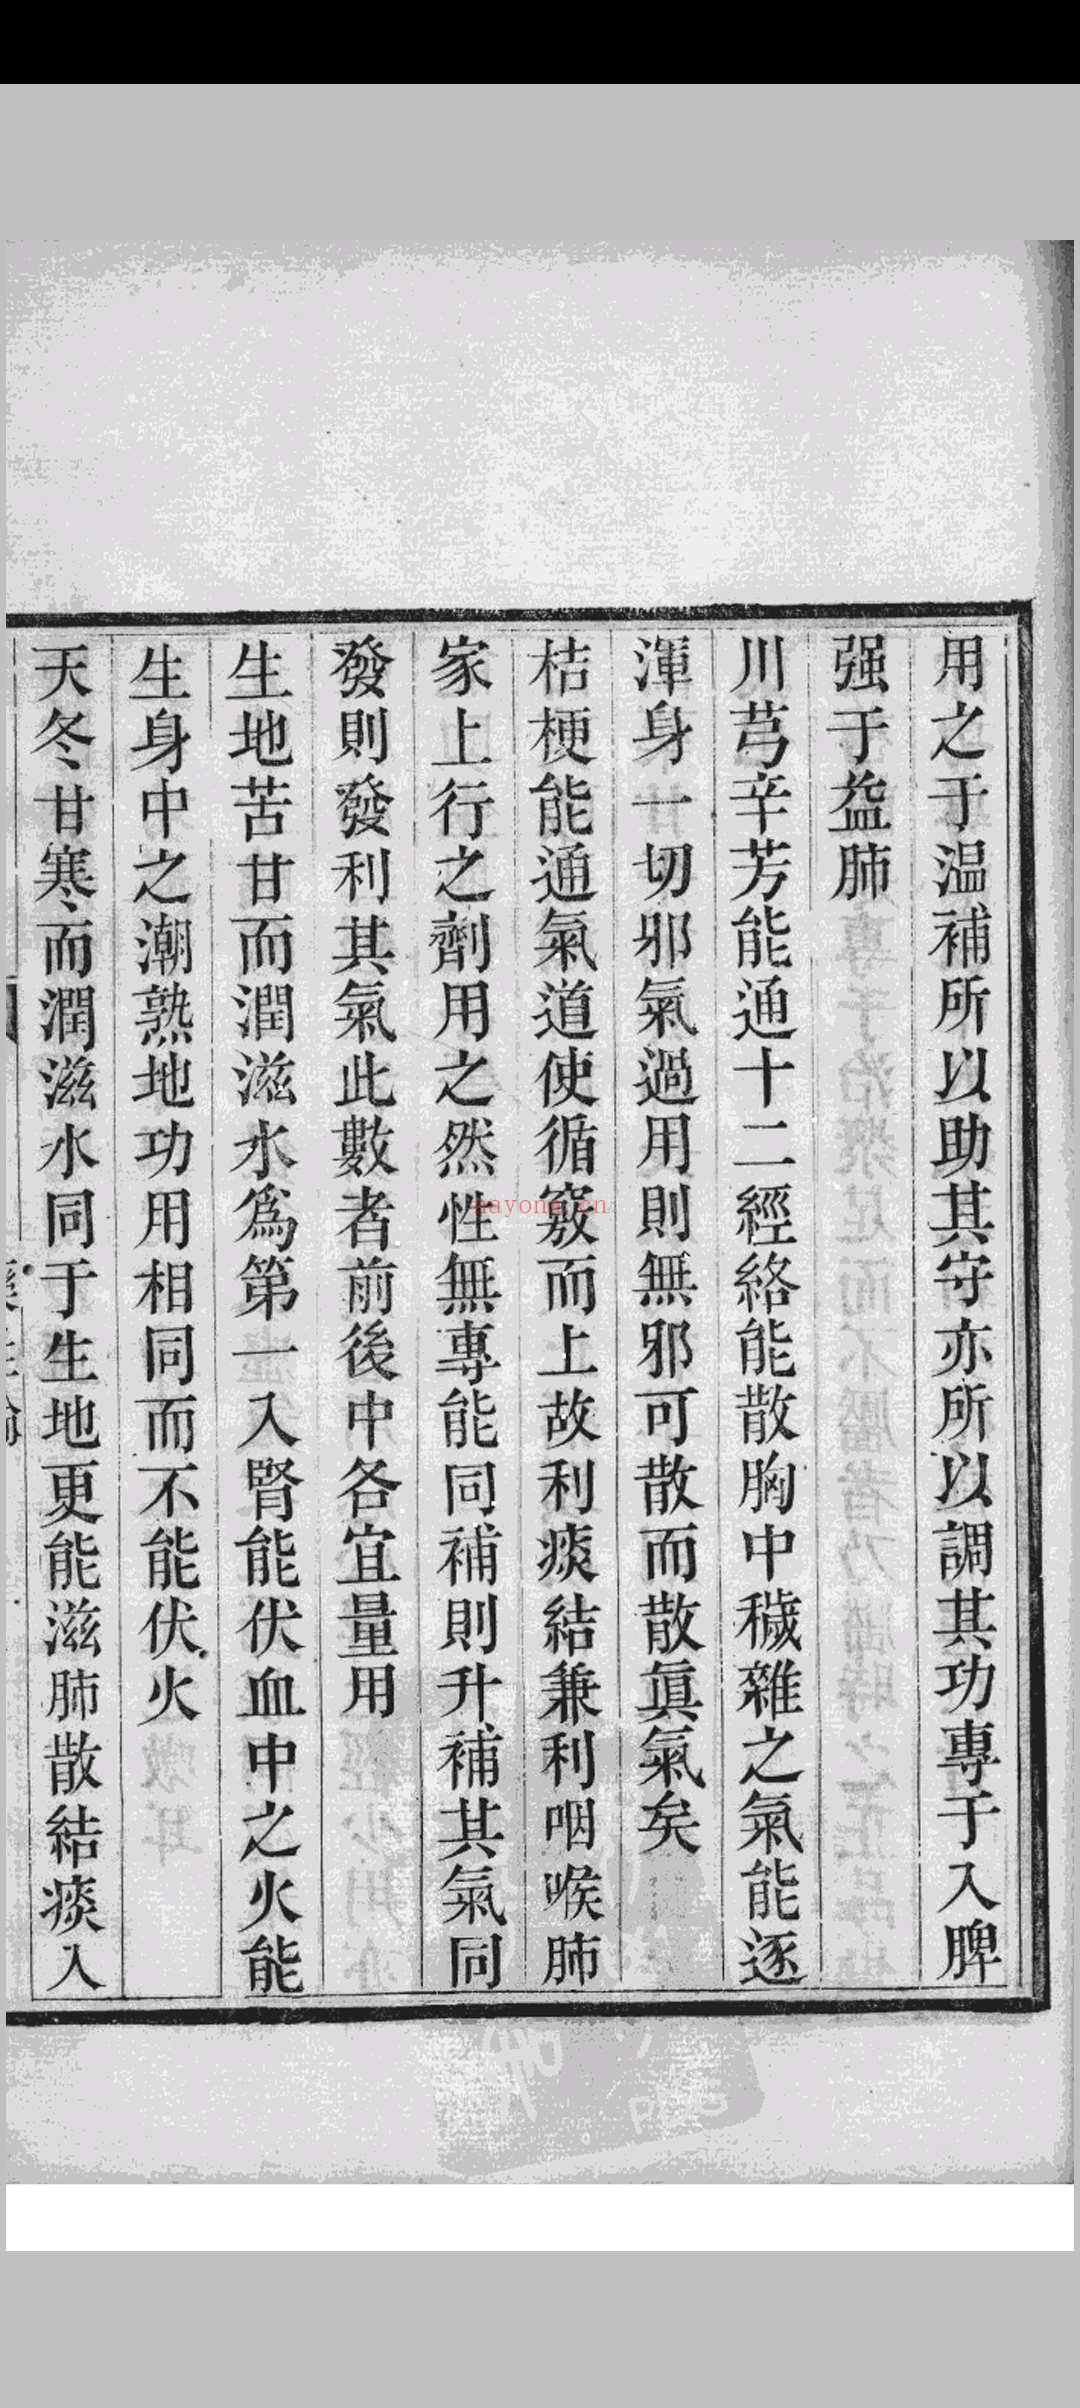 用之于温補所以助其守亦所以調其功專于入脾
强于益肺
川芎辛芳能通十二經絡能散胸中穢雜之氣能逐
渾身一切邪氣過用則無邪可散而散眞氣矣
桔梗能通氣道使循竅而上故利痰結兼利咽喉肺
家上行之劑用之然性無專能同補則升補其氣同
發則發利其氣此數者前後中各宜量用
生地苦甘而潤滋水爲第一入腎能伏血中之火能
生身中之潮熟地功用相同而不能伏火
天冬甘寒而潤滋水同于生地更能滋肺散結痰入
nayona.cn